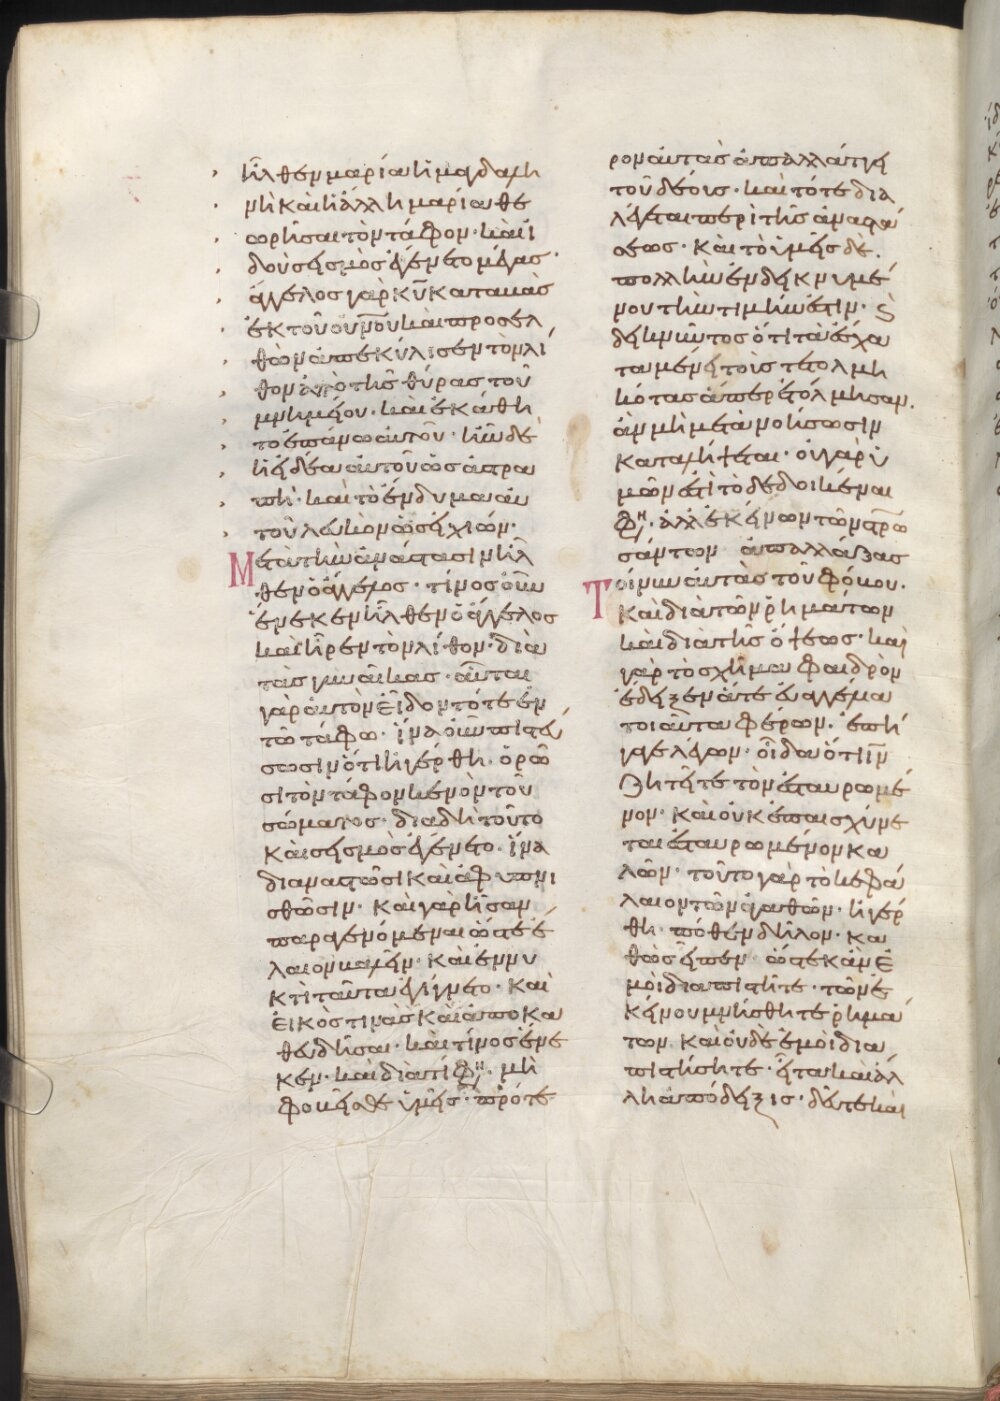 ἦλθεν μαρία ἡ μαγδαλη
νὴ καὶ ἡ ἄλλη μαρία θε
ωρῆσαι τὸν τάφον· καὶ ἰ
δοὺ σεισμὸς ἐγένετο μέγας·
ἄγγελος γὰρ κῡ καταβὰσ
ἐκ τοῦ οὐνοῦ καὶ προσελ
θὼν ἀπεκύλισεν τὸν λί
θον ἀπὸ τῆς θύρας τοῦ
μνημείου· καὶ ἐκάθη
το ἐπάνω αὐτοῦ· ἦν δὲ
ἡ ἰδέα αὐτοῦ ὡς ἀστρα
πὴ· καὶ τὸ ἔνδυμα αὐ
τοῦ λευκὸν ὡσεὶ χιών·
Μετὰ τὴν ἀνάστασιν ἦλ
θεν ὁ ἄγγελος· τίνος οὖν
ἕνεκεν ἦλθεν ὁ ἄγγελος
καὶ ἦρεν τὸν λίθον· διὰ
τὰς γυναῖκας· αὗται
γὰρ αὐτὸν εἶδον τότε ἐν
τῶ τάφω· ἵνα οὖν πιστεύ
σωσιν ὅτι ἠγέρθη· ὁρῶ
σι τὸν τάφον κενὸν τοῦ
σώματος· διαδὴ τοῦτο
καὶ σεισμὸς ἐγένετο· ἵνα
διαναστῶσι καὶ ἀφυπνι
σθῶσιν· καὶ γὰρ ἦσαν
παραγενόμεναι ὥστε ἔ
λαιον βαλεῖν· καὶ ἐν νυ
κτὶ ταῦτα ἐγίγνετο· καὶ
εἰκὸς τινὰς καὶ ἀποκα
θευδῆσαι· καὶ τίνος ἕνε
κεν· καὶ διατί φη· μὴ
φοβεῖσθε ὑμεῖς· πρότε
ρον αὐτὰς ἀπαλλάττει
τοῦ δέους· καὶ τότε δια
λέγεται περὶ τῆς ἀναστά
σεως· καὶ τὸ ὑμεῖς δὲ
πολλὴν ἐνδεικνυμέ
νου τὴν τιμήν ἐστιν·
δεικνῦντος ὅτι τὰ ἔσχα
τα μένει τοὺς τετολμη
κότας ἅπερ ἐτόλμησαν·
ἂν μὴ μετανοήσωσιν
καταλήψεται· οὐ γὰρ ὑ
μῶν ἐστὶ τὸ δεδοικέναι
φη· ἀλλ' ἐκείνων τῶν σταυρω
σάντων ἀπαλλάξας
Τοίνυν αὐτὰς τοῦ φόβου·
καὶ διὰ τῶν ῥημάτων
καὶ διὰ τῆς ὄψεως· καὶ
γὰρ τὸ σχῆμα φαιδρὸν
ἔδειξεν ἅτε εὐαγγέλια
τοιαῦτα φέρων· ἐπή
γαγε λέγων· οἶδα ὅτι ἰν
ζητεῖτε τὸν ἐσταυρωμέ
νον· καὶ οὐκ ἐπαισχύνε
ται ἐσταυρωμένον κα
λῶν· τοῦτο γὰρ τὸ κεφά
λαιον τῶν ἀγαθῶν· ἠγέρ
θη· πόθεν δῆλον· κα
θὼς εἶπεν· ὥστε κἂν ἐ
μοὶ διαπιστῆτε· τῶν ἐ
κείνου μνήσθητε ῥημά
των καὶ οὐδὲ ἐμοὶ δια
πιστήσητε· εἶτα καὶ ἄλ
λη ἀπόδειξις· δεῦτε καὶ